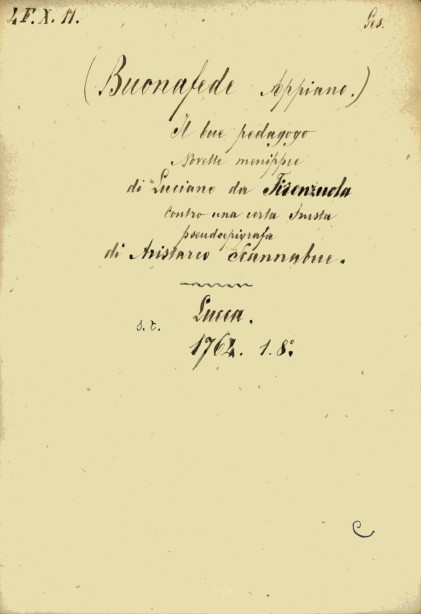 4 F. X. 11.
Ges.
(Buonafede Appiano.)
Il bue pedagogo
Novelle menippee
di Luciano da Firenzuola
contro una certa Frusta
pseudoepigrafa
di Aristarco Scannabue.
s. t. Lucca.
1764. 1. 8º.
C